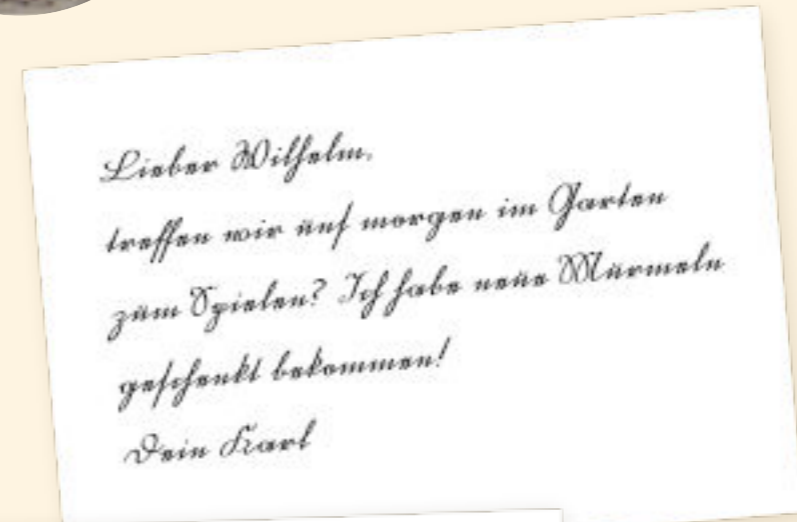 Lieber Wilhelm,
treffen wir uns morgen im Garten
zum Spielen? Ich habe neue Murmeln
geschenkt bekommen!
Dein Karl